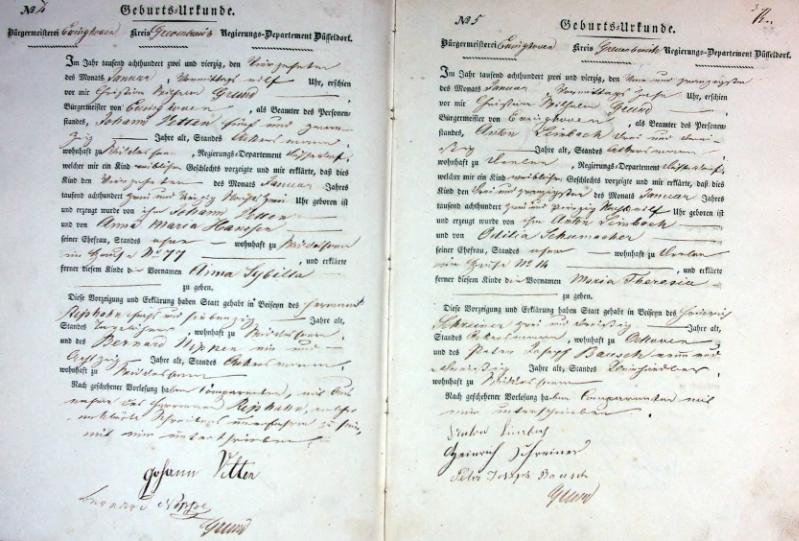 No 4
Geburts-Urkunde.
Bürgermeisterei Kreis Grevenbroich Regierungs-Departement Düsseldorf.
Im Jahr tausend achthundert zwei und vierzig, den Vierzehnten
des Monats Januar, Vormittags elf Uhr, erschien
vor mir Christian Wilhelm Grund
Bürgermeister von , als Beamter des Personen-
standes, Johann fünf und zwan-
zig Jahre alt, Standes Ackersmann,
wohnhaft zu , Regierungs-Departement Düsseldorf,
welcher mir ein Kind weiblichen Geschlechts vorzeigte und mir erklärte, daß dies
Kind den Vierzehnten des Monats Januar Jahres
tausend achthundert zwei und vierzig zwei Uhr geboren ist
und erzeugt wurde von ihm Johann
und von Anna Maria Hanssen
seiner Ehefrau, Standes ohne wohnhaft zu
im Hause No 77 , und erklärte
ferner diesem Kinde die Vornamen Anna Sybilla
zu geben.
Diese Vorzeigung und Erklärung haben Statt gehabt in Beiseyn des Hermann
Rephahn und siebenzig Jahre alt,
Standes , wohnhaft zu
und des Bernard und
achtzig Jahre alt, Standes Ackersmann,
wohnhaft zu
Nach geschehener Vorlesung haben Comparenten, mit Aus-
nahme des Hermann Rephahn, welcher
erklärte Schreibens unerfahren zu sein,
mit mir unterschrieben.
Johann
Bernard
Grund
No 5
Geburts-Urkunde.
Bürgermeisterei Kreis Grevenbroich Regierungs-Departement Düsseldorf.
Im Jahr tausend achthundert zwei und vierzig, den und zwanzigsten
des Monats Januar, Vormittags zehn Uhr, erschien
vor mir Christian Wilhelm Grund
Bürgermeister von , als Beamter des Personen-
standes, Anton Limbach drei und drei-
ßig Jahre alt, Standes Ackersmann,
wohnhaft zu , Regierungs-Departement Düsseldorf,
welcher mir ein Kind weiblichen Geschlechts vorzeigte und mir erklärte, daß dies
Kind den drei und zwanzigsten des Monats Januar Jahres
tausend achthundert zwei und vierzig elf Uhr geboren ist
und erzeugt wurde von ihm Anton Limbach
und von Odilia Schumacher
seiner Ehefrau, Standes ohne wohnhaft zu
im Hause No 14 , und erklärte
ferner diesem Kinde die Vornamen Maria Theresia
zu geben.
Diese Vorzeigung und Erklärung haben Statt gehabt in Beiseyn des Heinrich
Schreiner zwei und dreißig Jahre alt,
Standes Ackersmann, wohnhaft zu
und des Peter Joseph Bausch und
dreißig Jahre alt, Standes ,
wohnhaft zu
Nach geschehener Vorlesung haben Comparenten mit
mir unterschrieben.
Anton Limbach
Heinrich Schreiner
Peter Joseph Bausch
Grund